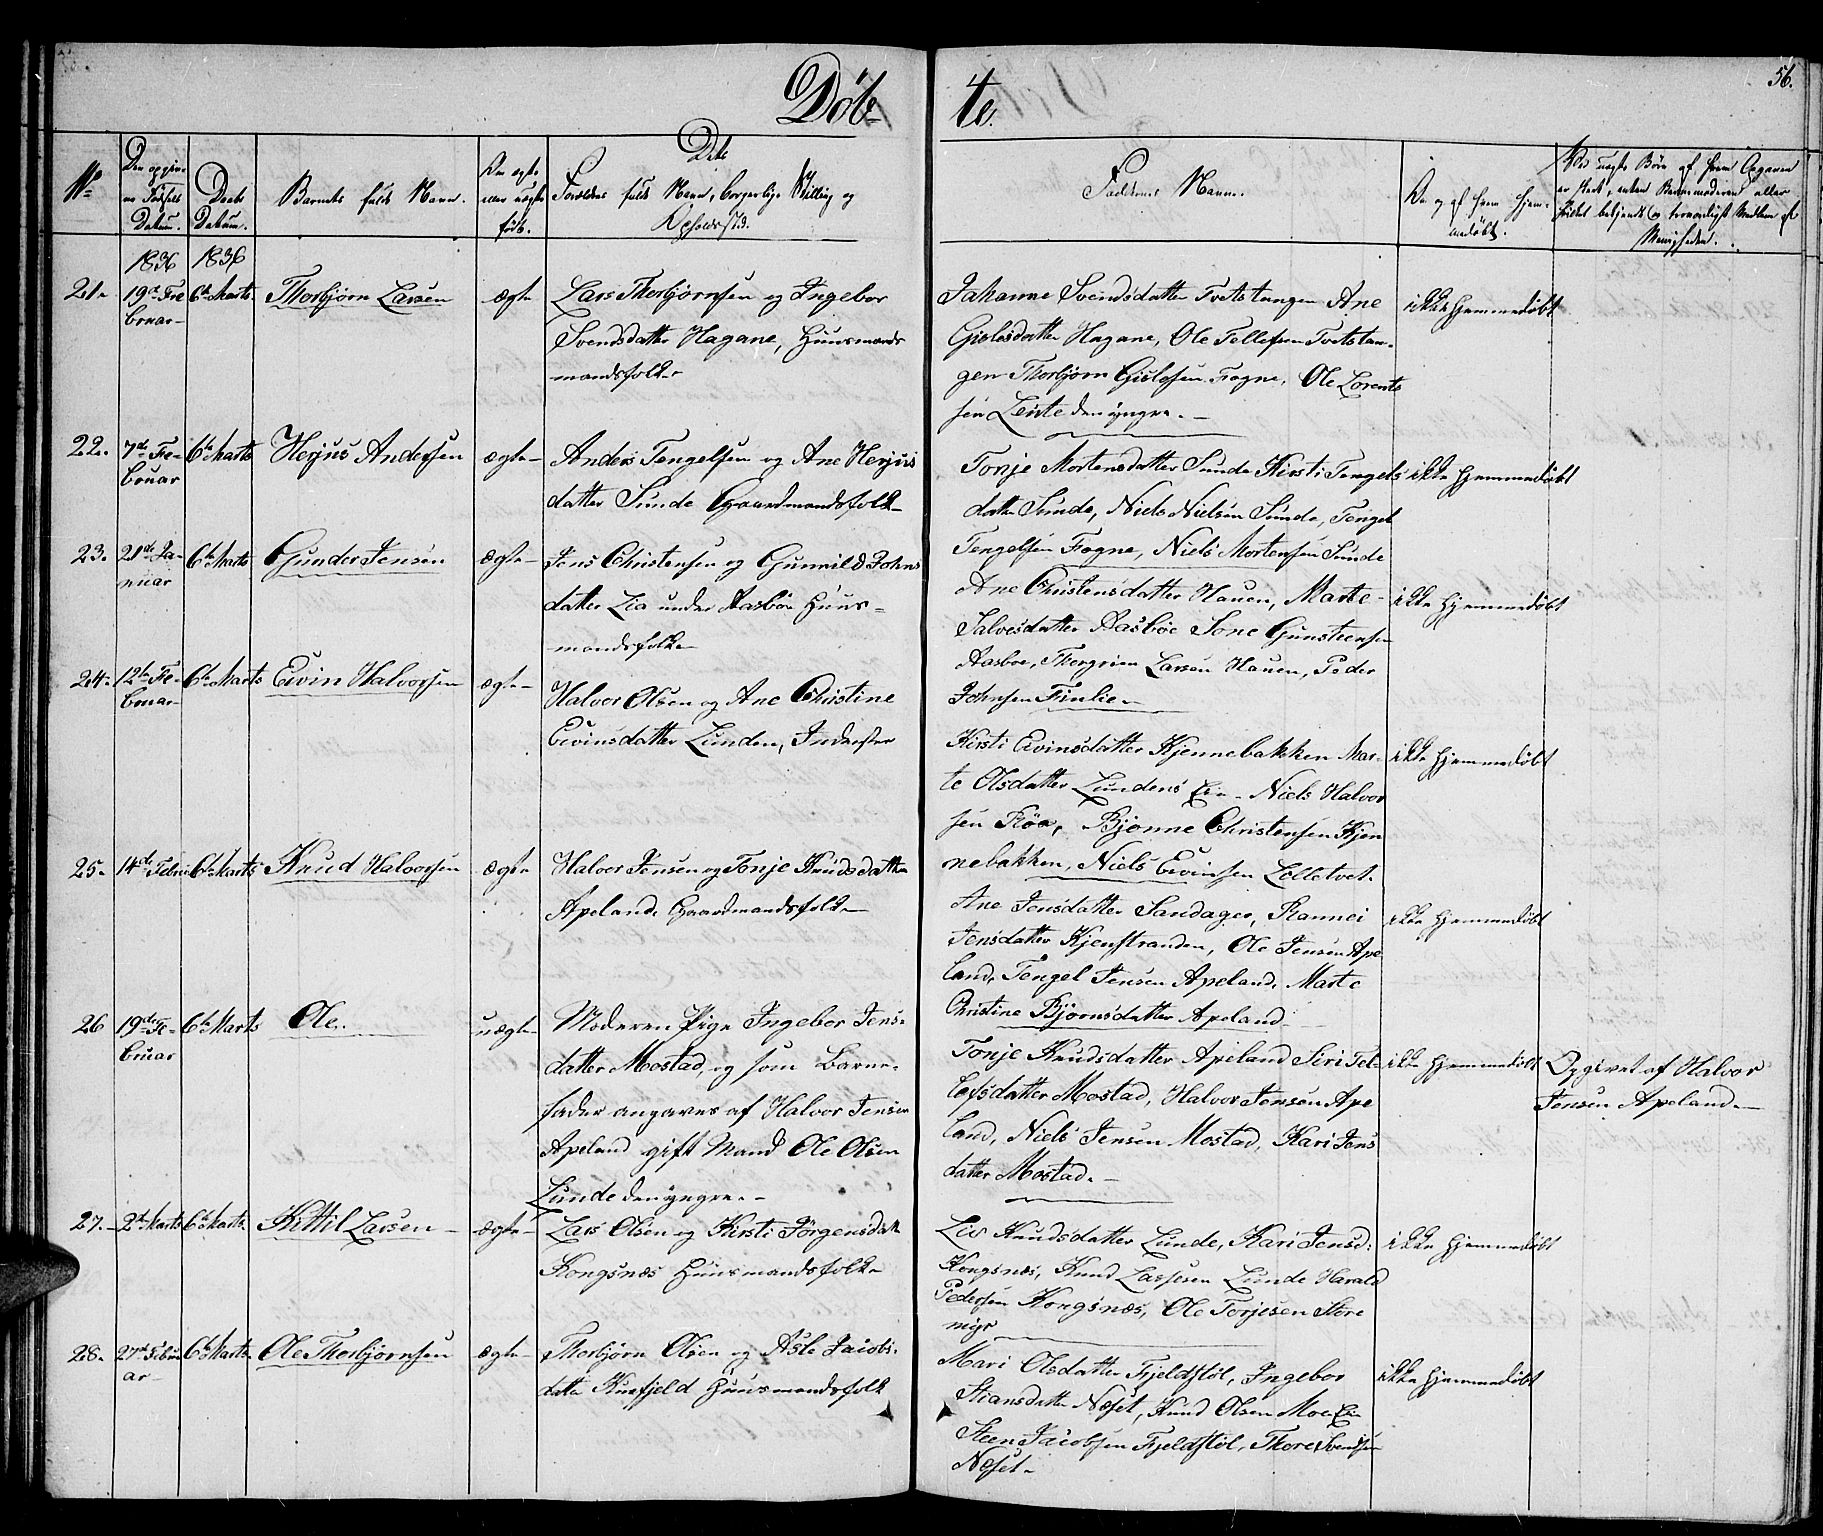 Døb-
te.
56.
No
Den opgiv-
ne Fødsels
Datum.
Daabs
Datum.
Barnets fulde Navn.
Om ægte
eller uægte
født.
Dets
Forældres fulde Navn, borgerlige Stilling og
Opholdssted.
Faddernes Navne.
Om og af hvem hjem-
medøbt.
Ved uægte Børn af hvem Opgaven
er skeet, enten Barnemoderen eller
bekjendt og troværdigt Medlem af
Menigheden.
1836 1836
21.
19de Fe
bruar
6te Marts.
Thorbjørn Larsen
ægte
Lars Thorbjørnsen og Ingebor
Svendsdatter Hagane, Huusmands
mandsfolk
Johanne Svendsdatter Tvetstangen Ane
Gislesdatter Hagane, Ole Tellefsen Tvetstan-
gen Thorbjørn Gislesen Fogne, Ole Lorents
sen Leiste den yngre.
ikke hjemmedøbt
22.
7de Fe-
bruar
6te Marts
Herjus Andersen
ægte
Anders Tengelsen og Ane Herjus
datter Sunde Gaardmandsfolk
Tonje Mortensdatter Sunde Kirsti Tengels
datter Sunde, Niels Nielsen Sunde, Tengel
Tengelsen Fogne, Niels Mortensen Sunde
ikke hjemmedøbt
23.
21de Ja-
nuar
6te Marts
Gunder Jensen
ægte
Jens Christensen og Gunnild Johns
datter Lia under Aasbøe Huus-
mandsfolk
Ane Christensdatter Hauen, Marte
Salvesdatter Aasbøe Sone Gunsteensen
Aasboe, Thorgrim Larsen Hauen, Peder
Johnsen Finlie
ikke hjemmedøbt
24.
12te Fe-
bruar
6te Marts
Eivin Halvorsen
ægte
Halvor Olsen og Ane Christine
Eivinsdatter Lunden, Inderster
Kirsti Eivinsdatter Kjennebakken Mar-
te Olsdatter Lundens Eie Niels Halvor
sen Røe, Bjonne Christensen Kjen
nebakken, Niels Eivinsen Lolletvet.
ikke hjemmedøbt
25.
14de Febru
6te Marts
Knud Halvorsen
ægte
Halvor Jensen og Tonje Knudsdatter
Apeland Gaardmandsfolk
Ane Jensdatter Sandager, Rannei
Jensdatter Kjenstranden, Ole Jensen Ape
land, Tengel Jensen Apeland, Marte
Christine Bjørnsdatter Apeland
ikke hjemmedøbt
26
19de Fe-
bruar
6te Marts
Ole.
uægte
Moderen Pige Ingebor Jens-
datter Mostad, og som Barne-
fader angaves af Halvor Jensen
Apeland gift Mand Ole Olsen
Lunde den yngre.
Tonje Knudsdatter Apeland Siri Tel-
lefsdatter Mostad, Halvor Jensen Ape
land, Niels Jensen Mostad, Kari Jens
datter Mostad.
ikke hjemmedøbt
Opgivet af Halvor
Jensen Apeland
27.
2de Marts
6te Marts.
Kittil Larsen
ægte
Lars Olsen og Kirsti Jørgensdat
Kongsnæs Huusmandsfolk
Lis Knudsdatter Lunde, Kari Jensd.
Kongsnæs, Knud Lassesen Lunde Harald
Pedersen Kongsnæs, Ole Torjesen Store
myr
ikke hjemmedøbt
28.
27de Febru
ar
6te Marts.
Ole Thorbjørnsen
ægte
Thorbjørn Olsen og Asle Jacobs-
datter Huusmandsfolk
Mari Olsdatter Fjeldstøl, Ingebor
Stiansdatter Næset, Knud Olsen Moe Eie
Steen Jacobsen Fjeldstøl, Thore Svendsen
Næset
ikke hjemmedøbt